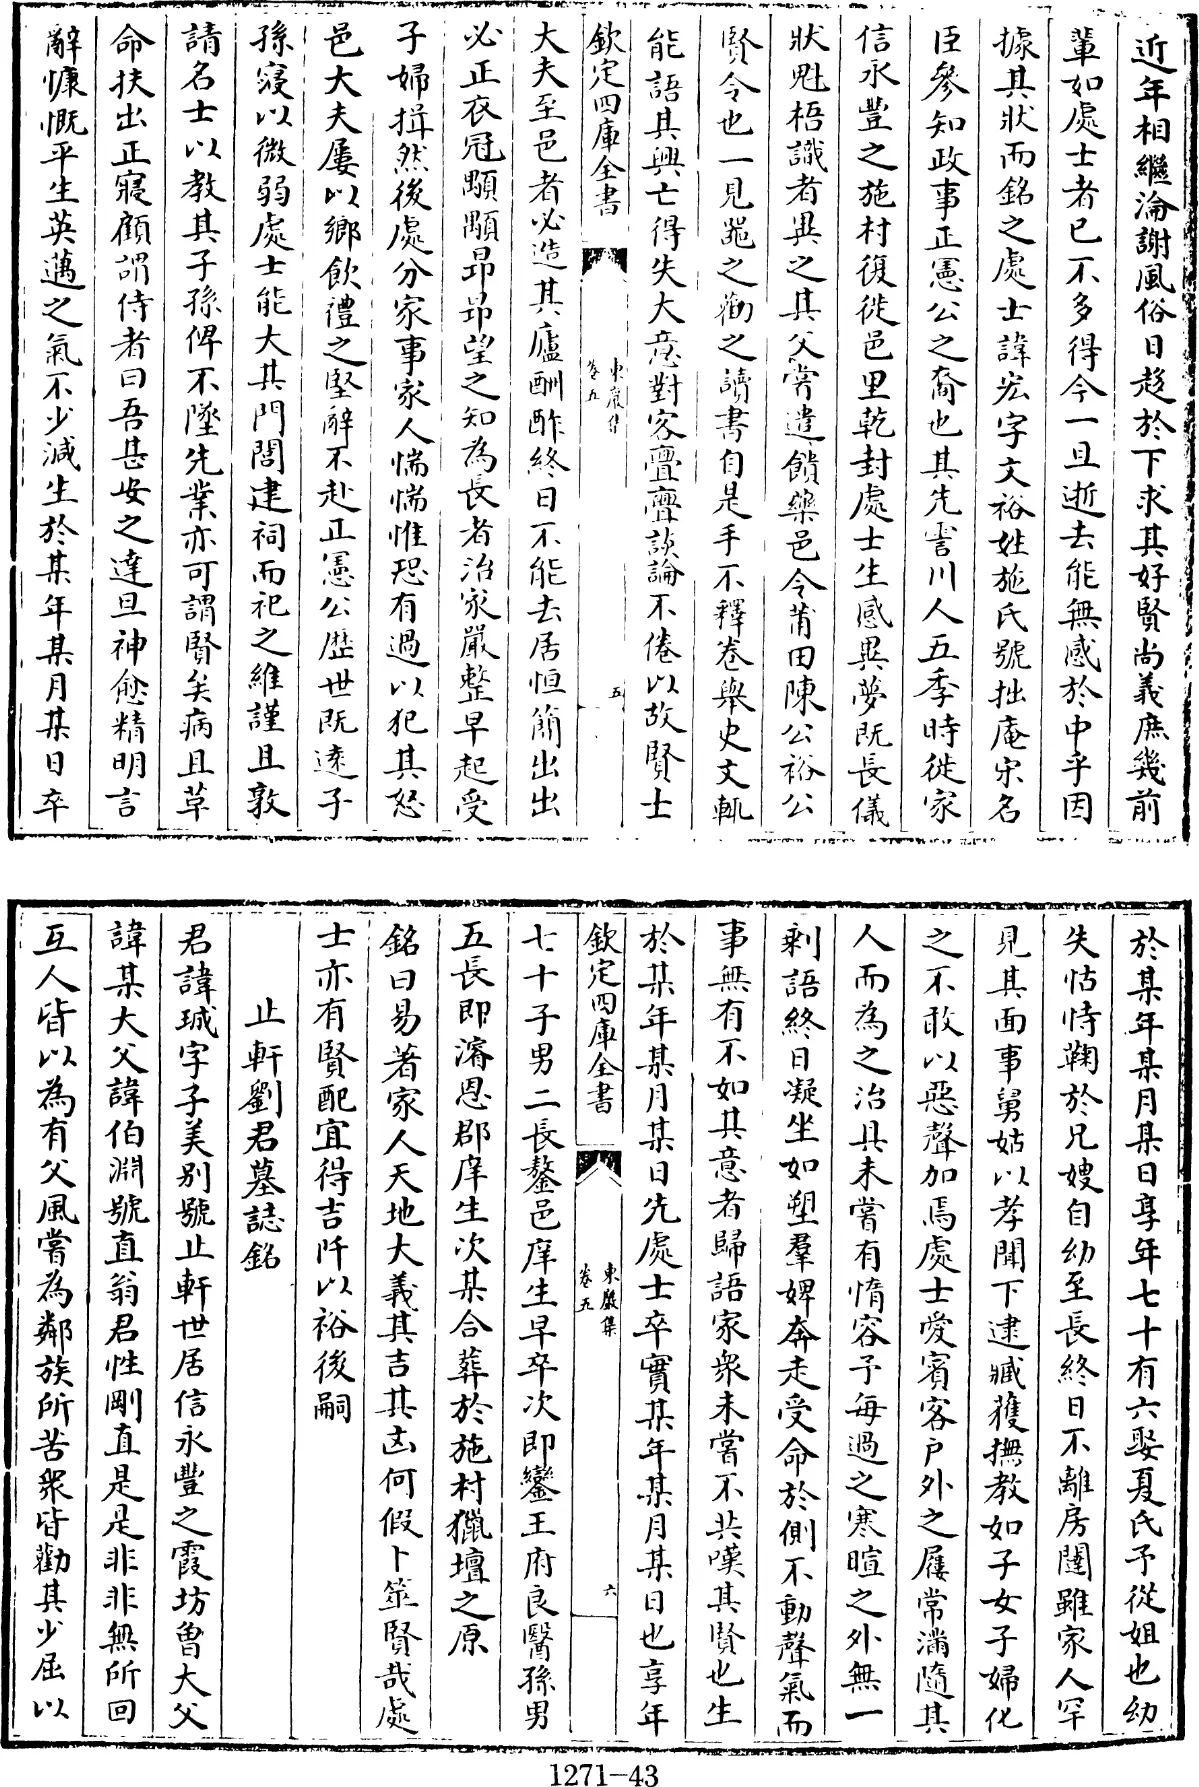 近年相繼淪謝風俗日趍於下求其好賢尚義庶幾前
輩如處士者已不多得今一旦逝去能無感於中乎因
據其狀而銘之處士諱宏字文裕姓施氏號拙庵宋名
臣參知政事正憲公之裔也其先霅川人五季時徙家
信永豐之施村復徙邑里乾封處士生感異夢既長儀
狀魁梧識者異之其父嘗遣饋藥邑令莆田陳公裕公
賢令也一見器之勸之讀書自是手不釋卷舉史文輒
能語其興亡得失大意對客亹亹談論不倦以故賢士
欽定四庫全書
東巖集
卷五
五
大夫至邑者必造其廬酬酢終日不能去居恒簡出出
必正衣冠顒顒昂昂望之知為長者治家嚴整早起受
子婦揖然後處分家事家人惴惴惟恐有過以犯其怒
邑大夫屢以鄉飲禮之堅辭不赴正憲公歷世既遠子
孫寖以微弱處士能大其門閭建祠而祀之維謹且敦
請名士以教其子孫俾不墜先業亦可謂賢矣病且革
命扶出正寢顧謂侍者曰吾甚安之達旦神愈精明言
辭慷慨平生英邁之氣不少減生於某年某月某日卒
於某年某月某日享年七十有六娶夏氏予從姐也幼
失怙恃鞠於兄嫂自幼至長終日不離房闥雖家人罕
見其面事舅姑以孝聞下逮臧獲撫教如子女子婦化
之不敢以惡聲加焉處士愛賓客戶外之屨常滿隨其
人而為之治具未嘗有惰容予每過之寒暄之外無一
剩語終日凝坐如塑羣婢奔走受命於側不動聲氣而
事無有不如其意者歸語家衆未嘗不共嘆其賢也生
於某年某月某日先處士卒實某年某月某日也享年
欽定四庫全書
東巖集
卷五
六
七十子男二長鏊邑庠生早卒次即鑾王府良醫孫男
五長即濬恩郡庠生次某合葬於施村獵壇之原
銘曰易著家人天地大義其吉其凶何假卜筮賢哉處
士亦有賢配宜得吉阡以裕後嗣
止軒劉君墓誌銘
君諱珹字子美別號止軒世居信永豐之霞坊曾大父
諱某大父諱伯淵號直翁君性剛直是是非非無所回
互人皆以為有父風嘗為鄰族所苦衆皆勸其少屈以
1271-43